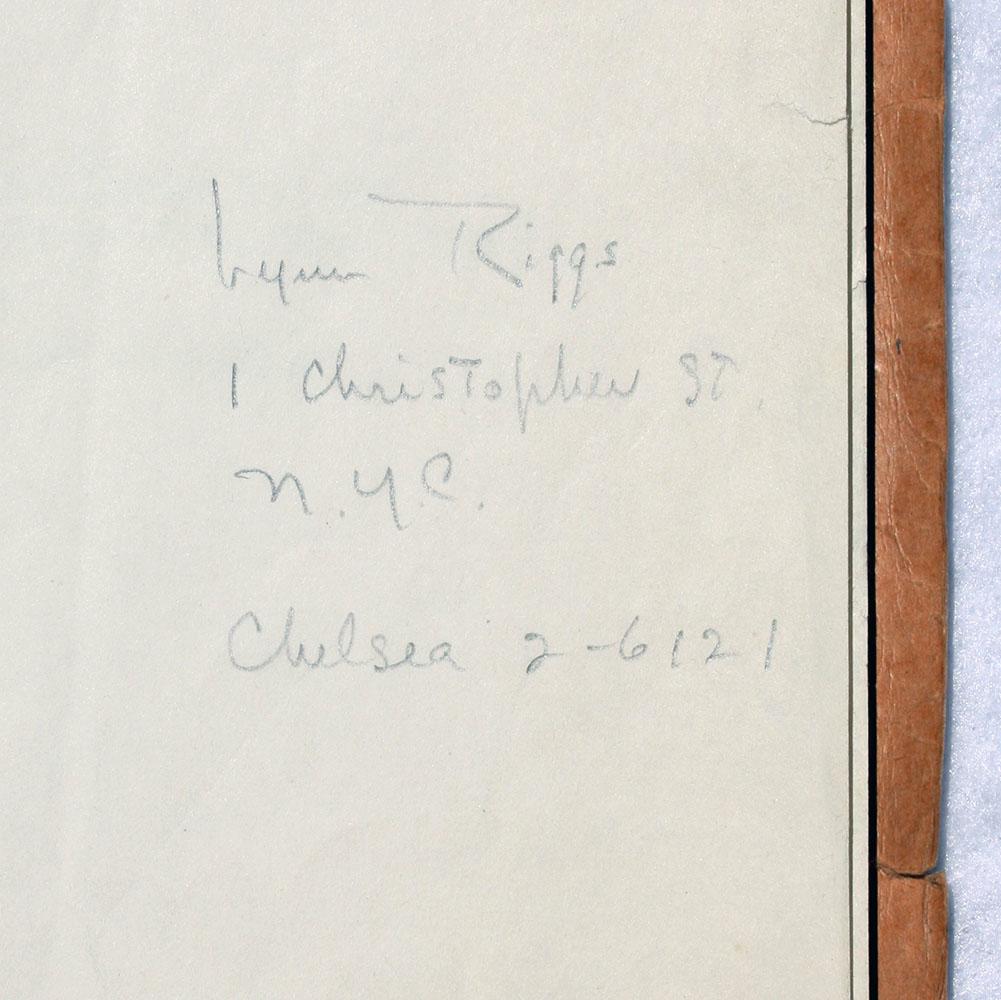 Lynn Riggs
1 Christopher St.
N.Y.C.
Chelsea 2-6121